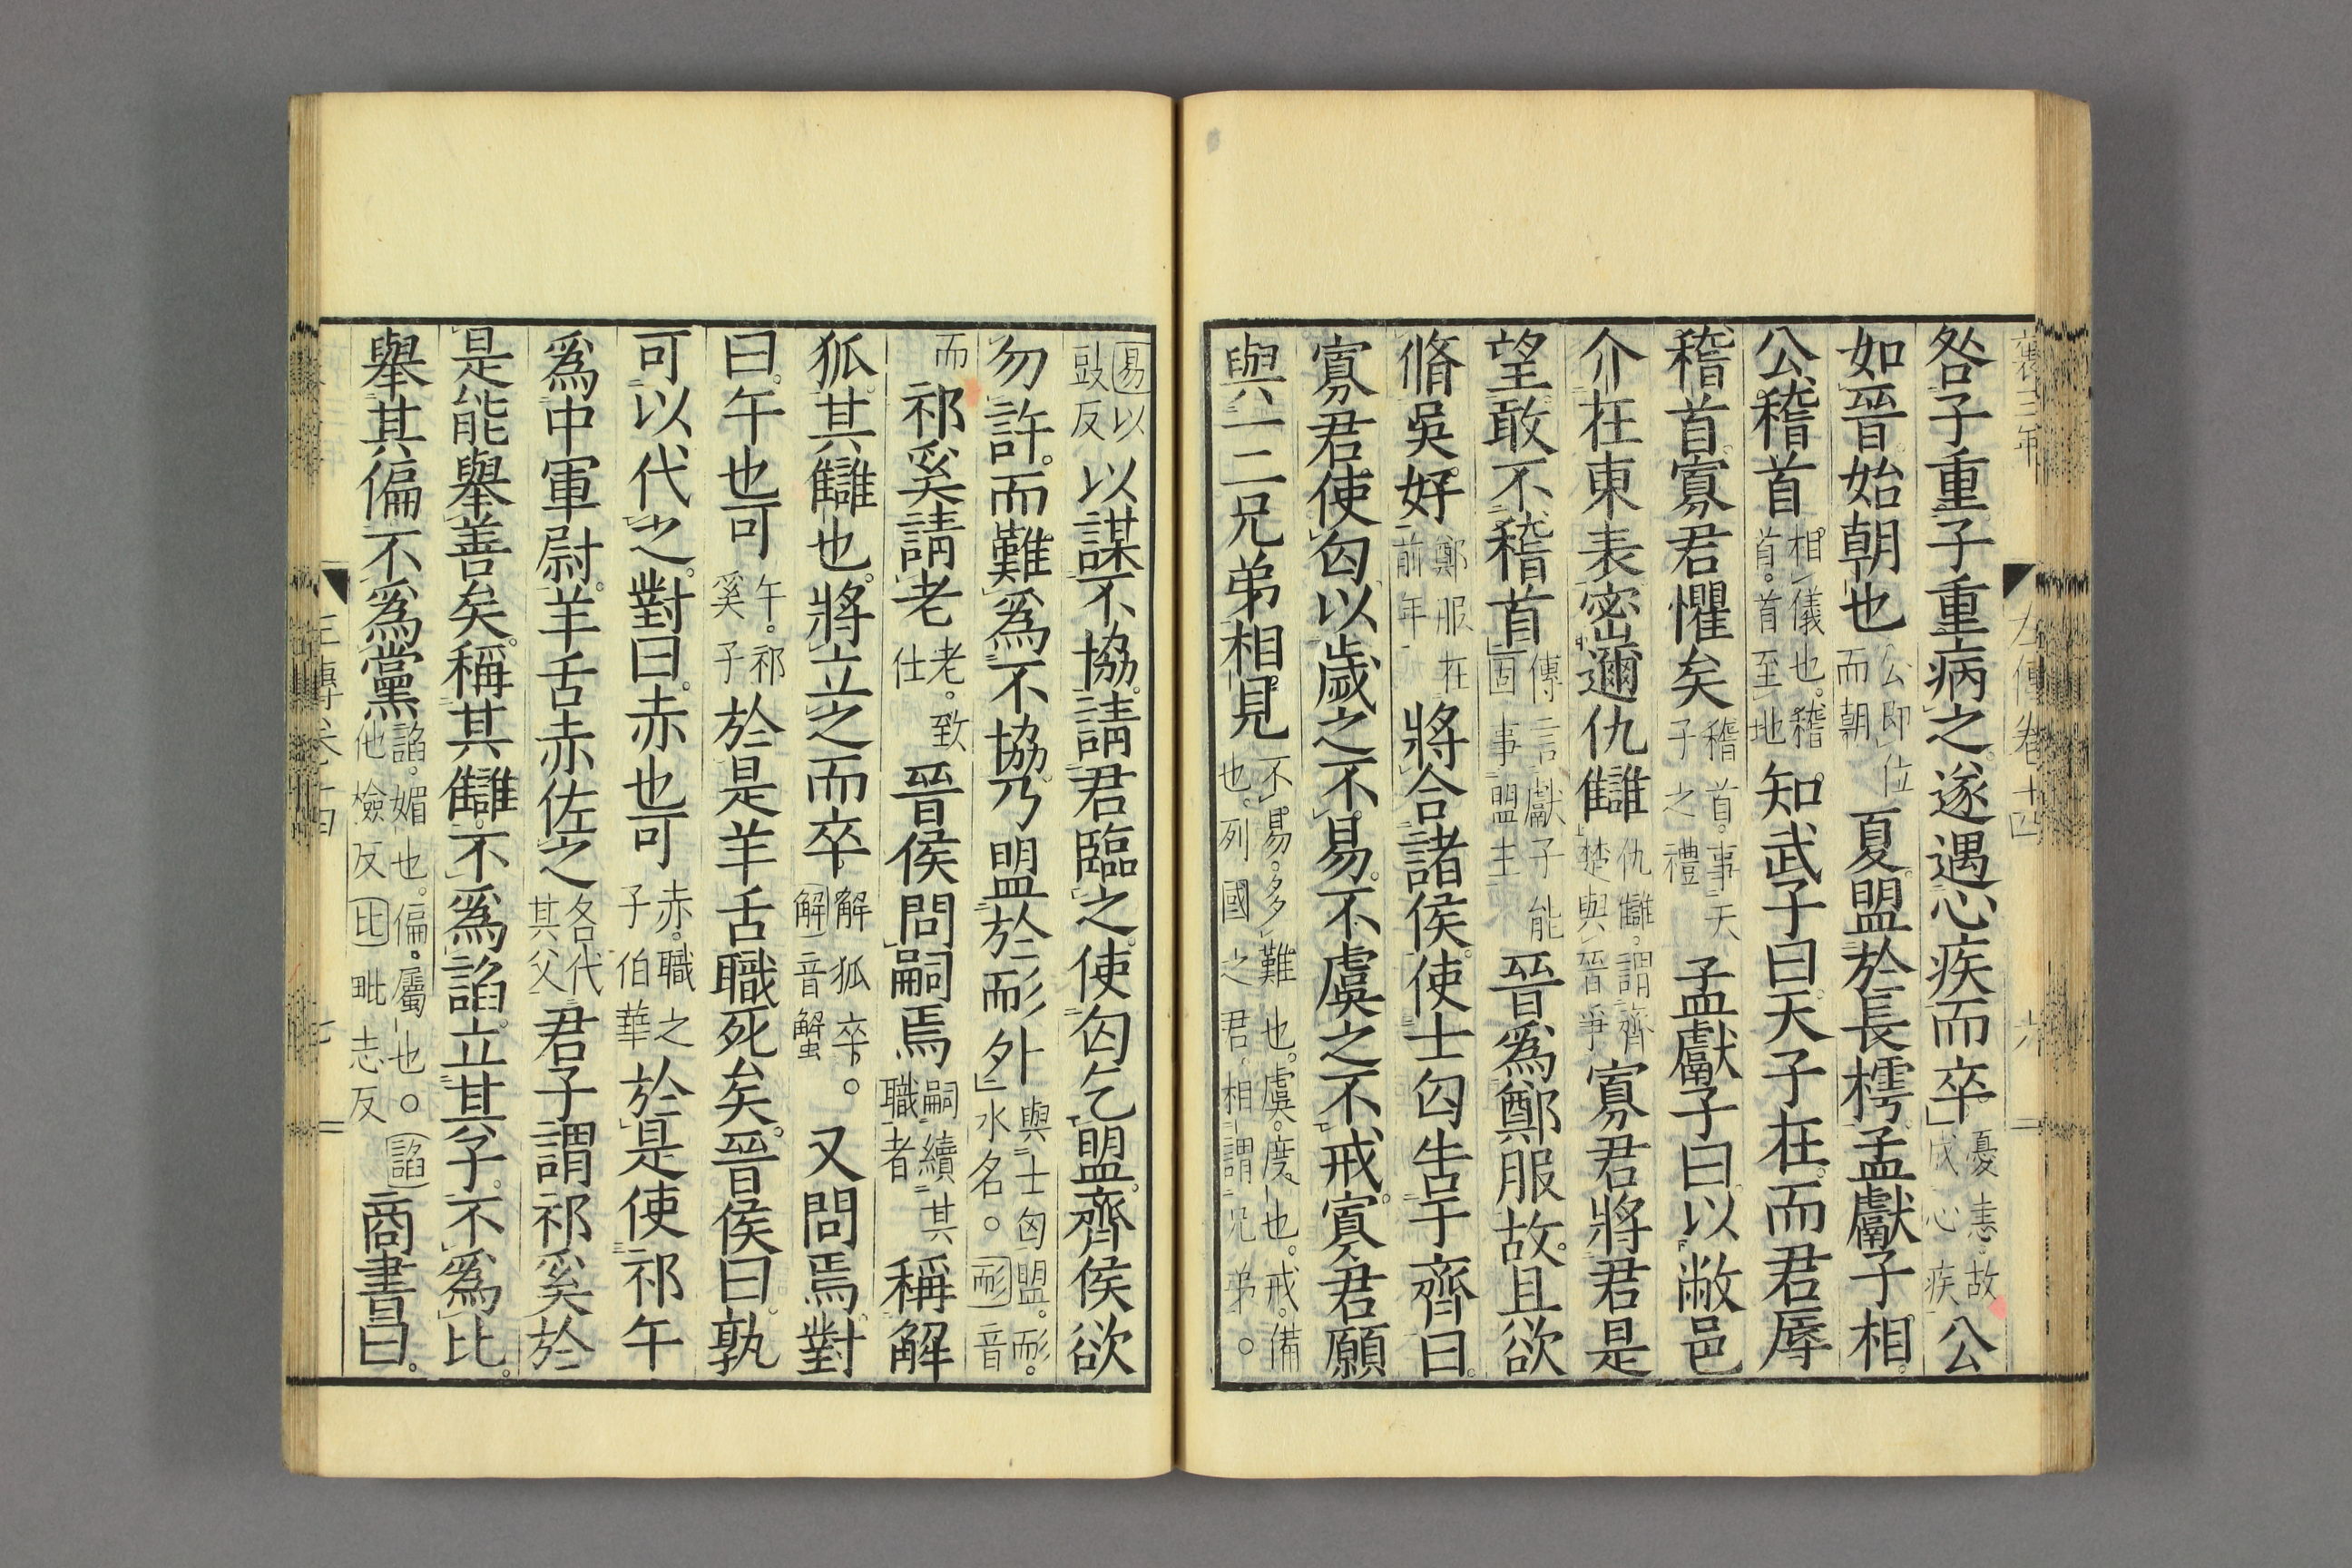 襄三年
左傳卷十四
六
咎子重子重病之遂遇心疾而卒憂恚故成心疾公
如晉始朝也公即位而朝夏盟於長樗孟獻子相
公稽首相儀也稽首首至地知武子曰天子在而君辱
稽首寡君懼矣稽首事天子之禮孟獻子曰以敝邑
介在東表密邇仇讎仇讎謂齊楚與晉爭寡君將君是
望敢不稽首傳言獻子能固事盟主晉爲鄭服故且欲
脩吳好鄭服在前年將合諸侯使士匄告于齊曰
寡君使匄以歲之不易不虞之不戒寡君願
與一二兄弟相見不易多難也虞度也戒備也列國之君相謂兄弟○
易以豉反以謀不協請君臨之使匄乞盟齊侯欲
勿許而難爲不協乃盟於耏外與士匄盟耏水名○耏音
而祁奚請老老致仕晉侯問嗣焉嗣續其職者稱解
狐其讎也將立之而卒解狐卒○解音蟹又問焉對
曰午也可午祁奚子於是羊舌職死矣晉侯曰孰
可以代之對曰赤也可赤職之子伯華於是使祁午
爲中軍尉羊舌赤佐之各代其父君子謂祁奚於
是能舉善矣稱其讎不爲諂立其子不爲比
舉其偏不爲黨諂媚也偏屬也○諂他檢反比毗志反商書曰